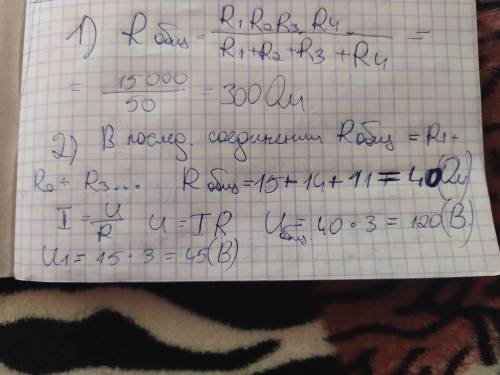 1) Rобщ = R1 R2 R3 R4 / R1+R2+R3+R4 =
= 15000 / 50 = 300 Ом.
2) В посл. соединении Rобщ = R1+
R2 + R3... Rобщ=15+14+11=40(Ом)
I = U/R U = IR Uобщ. = 40·3 = 120(В)
U1 = 15·3 = 45(В)